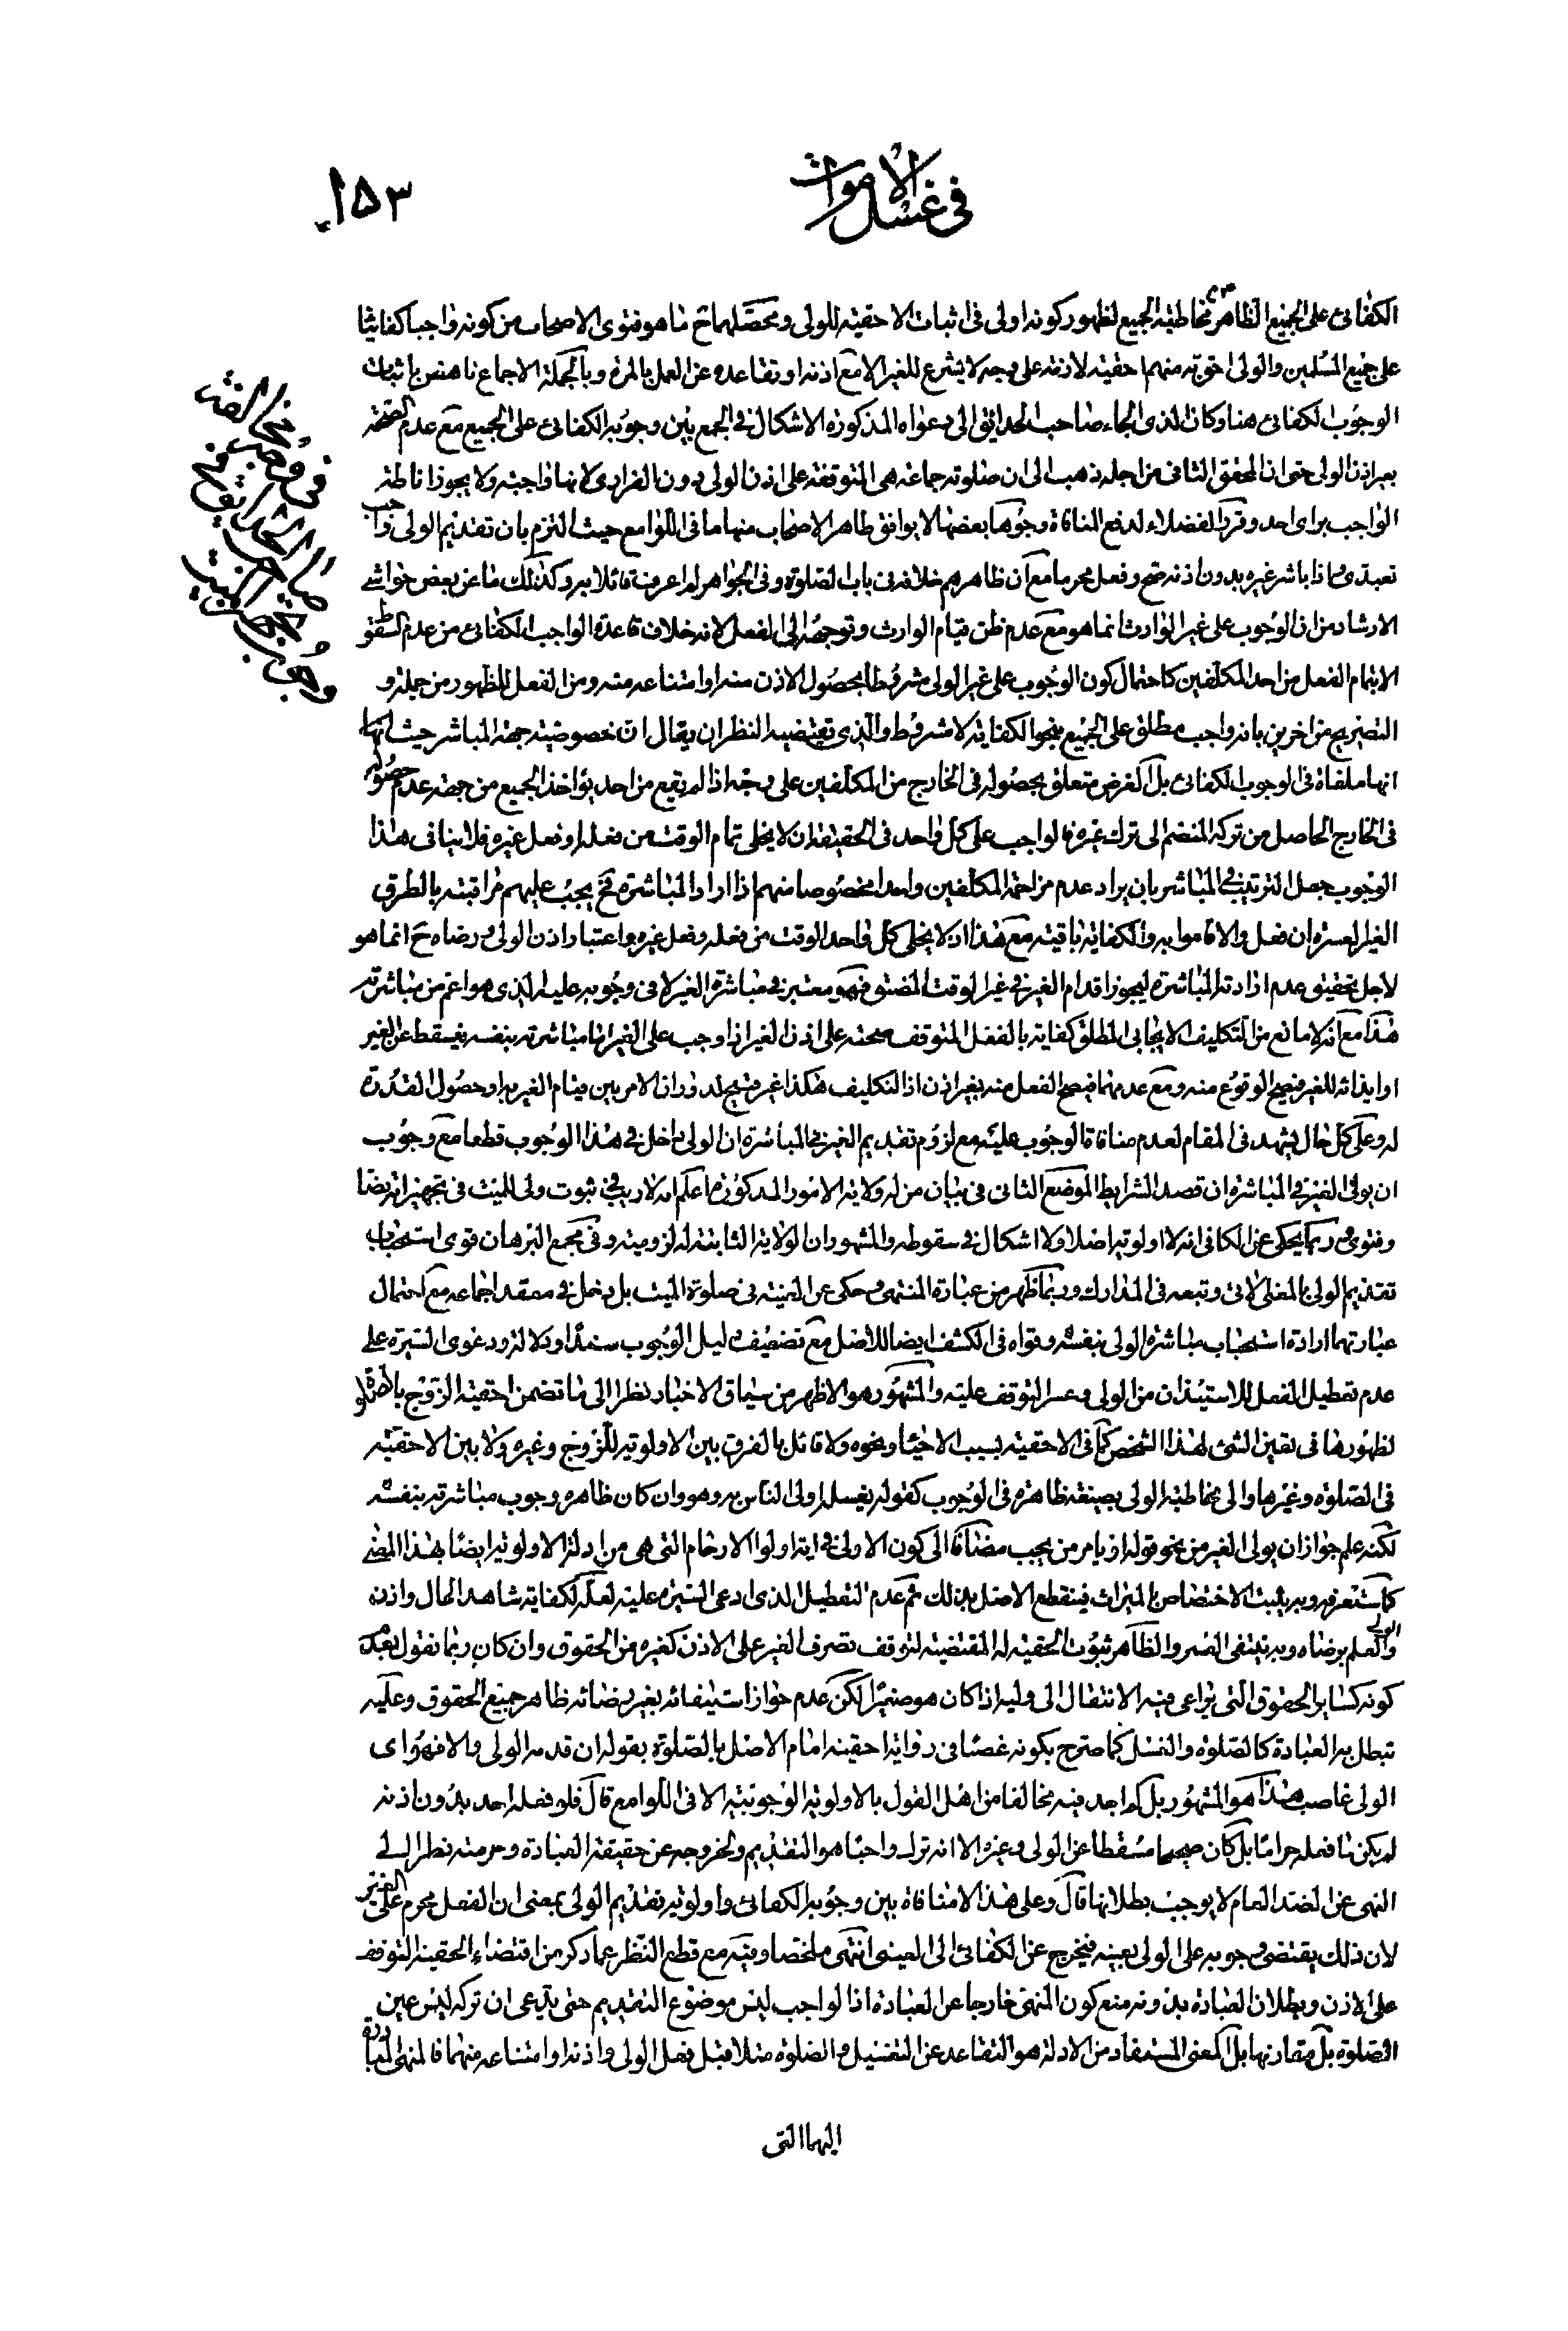 في غسل الاموات
١٥٣
الكفائي على الجميع الظاهر مخاطبة الجميع لظهور كونه اولى في اثبات الاحقية للولي ومحصلهما ح ما هو فتوى الاصحاب من كونه واجبا كفائيا
على جميع المسلمين والولي احق به منهم احقية لازمة على وجه لا يشرع للغير الا مع اذنه او تقاعده عن العمل بالمرة وبالجملة الاجماع ناهض باثبات
الوجوب الكفائي هنا وكان الذي الجاء صاحب الحدائق الى دعواه المذكورة الاشكال في الجمع بين وجوبه الكفائي على الجميع مع عدم الصحة
بغير اذن الولي حتى ان المحقق الثاني من اجله ذهب الى ان صلوته جماعة هي المتوقفة على اذن الولي دون الفرادى لانها واجبة ولا يجوز اناطة
الواجب براى احد وقرر الفضلاء لدفع المنافاة وجوها بعضها لا يوافق ظاهر الاصحاب منها ما في اللوامع حيث التزم بان تقديم الولي واجب
تعبدي اذا باشر غيره بدون اذنه صح وفعل محرما مع ان ظاهرهم خلافه في باب الصلوة وفي الجواهر لم اعرف قائلا به وكذلك ما عن بعض حواشي
الارشاد من ان الوجوب على غير الوارث انما هو مع عدم ظن قيام الوارث وتوجهه الى الفعل لانه خلاف قاعدة الواجب الكفائي من عدم السقوط
الا بتمام الفعل من احد المكلفين كاحتمال كون الوجوب على غير الولي مشروطا بحصول الاذن منه او امتناعه منه ومن الفعل للظهور من جملة و
التصريح من اخرين بانه واجب مطلق على الجميع بنحو الكفاية لا مشروط والذي يقتضيه النظر ان يقال ان خصوصية جهة المباشر حيث انها
انها ملغاة في الوجوب الكفائي بل الغرض متعلق بحصوله في الخارج من المكلفين على وجه اذا لم يقع من احد يؤاخذ الجميع من جهة عدم حصوله
في الخارج الحاصل من تركه المنضم الى ترك غيره فالواجب على كل واحد في الحقيقة ان لا يخلى تمام الوقت من فعله او فعل غيره فلا ينافي هذا
الوجوب جعل الترتيب في المباشر بان يراد عدم مزاحمة المكلفين واحدا مخصوصا منهم اذا اراد المباشرة فح يجب عليهم مراقبته بالطرق
الغير العسرة ان فعل والا قاموا به والكفائية باقية مع هذا اذ لا يخلى كل واحد الوقت من فعله وفعل غيره واعتبار اذن الولي ورضاه ح انما هو
لاجل تحقيق عدم ارادته المباشرة ليجوز اقدام الغير في غير الوقت المضيق فهو معتبر في مباشرة الغير لا في وجوبه عليه الذي هو اعم من مباشرته
هذا مع انه لا مانع من التكليف الايجابي المطلق كفاية بالفعل المتوقف صحته على اذن الغير اذا وجب على الغير اما مباشرته بنفسه فيسقط عن الغير
او ايذانه للغير فيصح الوقوع منه ومع عدمهما فيصح الفعل منه بغير اذن اذ التكليف هكذا غير قبيح لدوران الامر بين قيام الغير به او حصول القدرة
له وعلى كل حال يشهد في المقام لعدم منافاة الوجوب عليه مع لزوم تقديم الغير في المباشرة ان الولي داخل في هذا الوجوب قطعا مع وجوب
ان يولى الغير في المباشرة ان قصد الشرايط الموضع الثاني في بيان من له ولاية الامور المذكورة اعلم انه لا ريب في ثبوت ولي للميت في تجهيزاته نصا
وفتوى وربما يحكى عن الكافي انه لا اولوية اصلا ولا اشكال في سقوطه والمشهور ان الولاية الثابتة له لزومية وفي مجمع البرهان قوى استحباب
تقديم الولي بالمعنى الاتي وتبعه في المدارك وربما ظهر من عبارة المنتهى وحكى عن الغنية في صلوة الميت بل دخل في معقد اجماعه مع احتمال
عبارتهما ارادة استحباب مباشرة الولي بنفسه وقواه في الكشف ايضا للاصل مع تضعيف دليل الوجوب سندا ودلالة ودعوى السيرة على
عدم تعطيل الفعل للاستيذان من الولي وعسر التوقف عليه والمشهور هو الاظهر من سياق الاخبار نظرا الى ما تضمن احقية الزوج بالصلوة
لظهورها في تعين الشئ لهذا الشخص كما في الاحقية بسبب الاحياء ونحوه ولا قائل بالفرق بين الاولوية للزوج وغيره ولا بين الاحقية
في الصلوة وغيرها والى مخاطبة الولي بصيغة ظاهرة في الوجوب كقوله يغسله اولى الناس به وهو وان كان ظاهره وجوب مباشرته بنفسه
لكنه علم جواز ان يولى الغير من نحو قوله او يامر من يحب مضافا الى كون الاولى في اية اولوا الارحام التي هي من ادلة الاولوية ايضا بهذا المعنى
كما ستعرفه وبه يثبت الاختصاص بالميراث فينقطع الاصل بذلك ثم عدم التعطيل الذي ادعى السيرة عليه لعله لكفاية شاهد الحال واذن الولي
والعلم برضاه وبه ينتفي العسر والظاهر ثبوت الحقية له المقتضية لتوقف تصرف الغير على الاذن كغيره من الحقوق وان كان ربما نقول بعدم
كونه كساير الحقوق التي يراعى فيه الانتقال الى وليه اذا كان هو صغيرا لكن عدم جواز استيفائه بغير رضائه ظاهر جميع الحقوق وعليه
تبطل به العبادة كالصلوة والغسل كما صرح بكونه غصبا في رواية احقية امام الاصل بالصلوة بقوله ان قدمه الولي والا فهو اي
الولي غاصب هذا هو المشهور بل لم اجد فيه مخالفا من اهل القول بالاولوية الوجوبية الا في اللوامع قال فلو فعله احد بدون اذنه
لم يكن ما فعله حراما بل كان صحيحا مسقطا عن الولي وغيره الا انه ترك واجبا هو التقديم ولخروجه عن حقيقة العبادة وحرمته نظرا الى
النهي عن الضد العام لا يوجب بطلانها قال وعلى هذا لا منافاة بين وجوبه الكفائي واولوية تقديم الولي بمعنى ان الفعل محرم على الغير
لان ذلك يقتضي وجوبه على الولي بعينه فيخرج عن الكفائي الى العيني انتهى ملخصا وفيه مع قطع النظر عما ذكر من اقتضاء الحقية التوقف
على الاذن وبطلان العبادة بدونه منع كون المنهي خارجا عن العبادة اذ الواجب ليس موضوع التقديم حتى يدعى ان تركه ليس عين
الصلوة بل مقارنها بل المعنى المستفاد من الادلة هو التقاعد عن التغسيل والصلوة مثلا قبل فعل الولي واذنه او امتناعه منهما فالمنهي المبادرة
اليهما التي
مخالفة
في وجوب
صاحب الحدائق في
وجوب تجهيز الميت